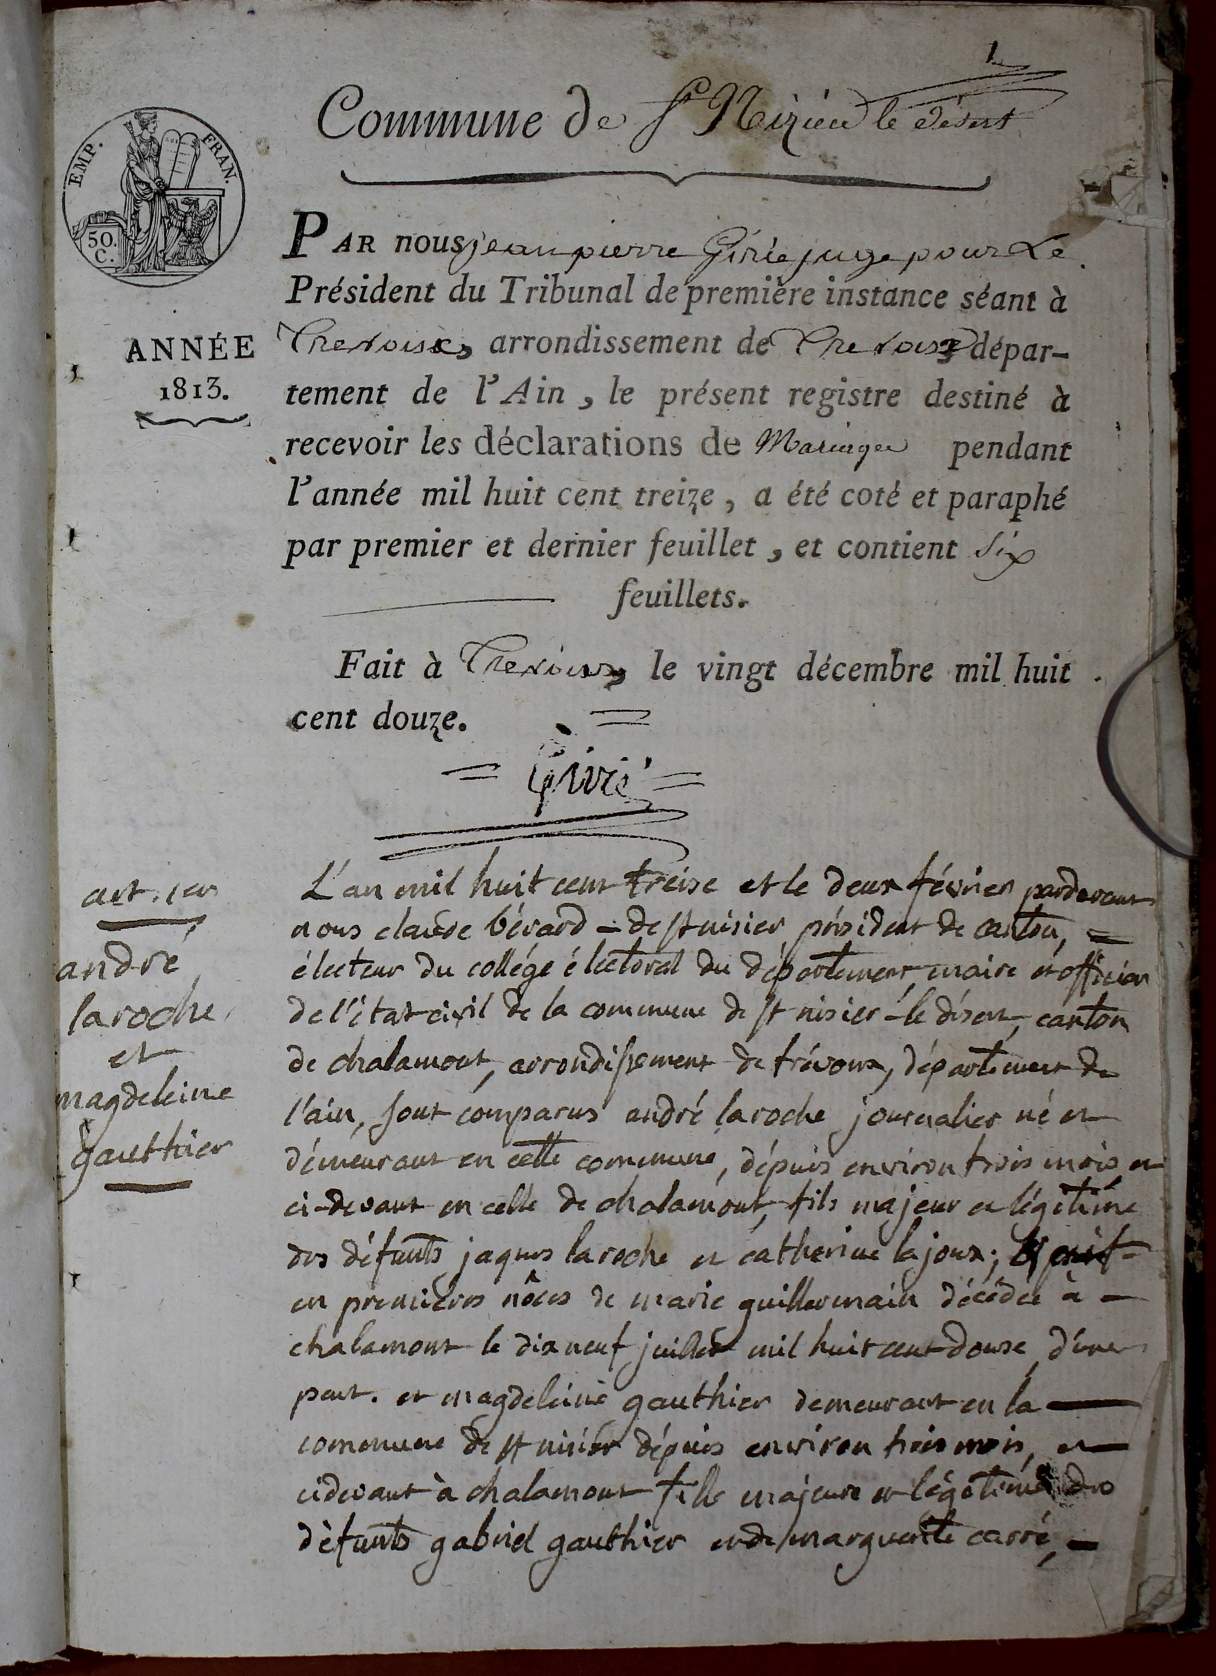 1
Commune de St Nizier le désert
EMP. FRAN.
50.
C.
PAR nous jean pierre Givrié juge pour Le
Président du Tribunal de première instance séant à
ANNÉE
1813.
Trevoux, arrondissement de Trevoux dépar-
tement de l'Ain, le présent registre destiné à
recevoir les déclarations de Mariages pendant
l'année mil huit cent treize, a été coté et paraphé
par premier et dernier feuillet, et contient Six
feuillets.
Fait à Trevoux, le vingt décembre mil huit
cent douze.
= Givrié =
art. 1er
andré
laroche,
et
magdeleine
gauthier
L'an mil huit cent treise et le deux février pardevant
nous claude bérard = de st nisier président de canton, =
électeur du collége électoral du département, maire et officier
de l'état civil de la commune de st nisier-le désert, canton
de chalamont, arrondissement de trévoux, département de
l'ain, sont comparus andré laroche journalier né et
démeurant en cette commune, dépuis environ trois mois et
ci-devant en celle de chalamont, fils majeur et légitime
des défunts jaques laroche et catherine lajoux;
en premières nôces de marie guillermain décédée à -
chalamont le dix neuf juillet mil huit cent douse, d'une
part. et magdeleine gauthier demeurant en la
commune de st nisier dépuis environ trois mois, et
cidevant à chalamont fille majeure et légitime des
défunts gabriel gauthier et de marguerite carré, -